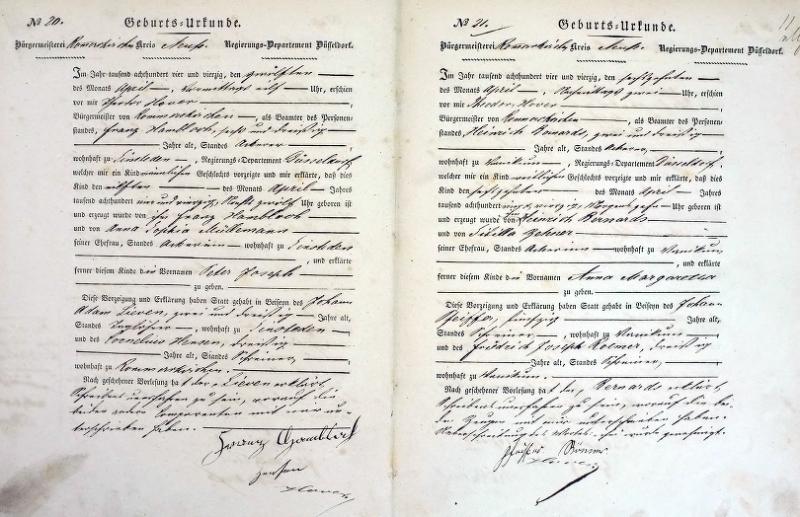 No 20. Geburts-Urkunde.
Bürgermeisterei Rommerskirchen Kreis Neuß. Regierungs-Departement Düsseldorf.
Im Jahr tausend achthundert vier und vierzig, den zwölften
des Monats April, Vormittags elf Uhr, erschien
vor mir Hover
Bürgermeister von Rommerskirchen, als Beamter des Personen-
standes, Franz Hambloch, sechs und dreißig
Jahre alt, Standes Ackerer
wohnhaft zu Sinsteden, Regierungs-Departement Düsseldorf,
welcher mir ein Kind männlichen Geschlechts vorzeigte und mir erklärte, daß dies
Kind den eilften des Monats April Jahrs
tausend achthundert vier und vierzig, Nachts zwölf Uhr geboren ist
und erzeugt wurde von ihm Franz Hambloch
und von Anna Sophia
seiner Ehefrau, Standes Ackerin wohnhaft zu Sinsteden
, und erklärte
ferner diesem Kinde den Vornamen Peter Joseph
zu geben.
Diese Vorzeigung und Erklärung haben Statt gehabt in Beiseyn des Johann
Adam Lieven, zwei und dreißig Jahre alt,
Standes Taglöhner, wohnhaft zu Sinsteden
und des Cornelius Hensen, dreißig
Jahre alt, Standes Schreiner,
wohnhaft zu Rommerskirchen.
Nach geschehener Vorlesung hat der Lieven erklärt,
Schreibens unerfahren zu sein, worauf die
beiden andern Comparenten mit mir un-
terschrieben haben.
Franz Hambloch
Hensen
Hover
No 21. Geburts-Urkunde.
Bürgermeisterei Rommerskirchen Kreis Neuß. Regierungs-Departement Düsseldorf.
Im Jahr tausend achthundert vier und vierzig, den sechszehnten
des Monats April, Nachmittags zwei Uhr, erschien
vor mir Theodor Hover
Bürgermeister von Rommerskirchen, als Beamter des Personen-
standes Heinrich Bernards, zwei und dreißig
Jahre alt, Standes Ackerer,
wohnhaft zu Vanikum, Regierungs-Departement Düsseldorf,
welcher mir ein Kind weiblichen Geschlechts vorzeigte und mir erklärte, daß dies
Kind den sechszehnten des Monats April Jahrs
tausend achthundert vier und vierzig, Morgens Uhr geboren ist
und erzeugt wurde von ihm Heinrich Bernards
und von Sibilla
seiner Ehefrau, Standes Ackerin wohnhaft zu Vanikum
, und erklärte
ferner diesem Kinde den Vornamen Anna Margaretha
zu geben.
Diese Vorzeigung und Erklärung haben Statt gehabt in Beiseyn des Johann
Pfeiffer, fünfzig Jahre alt,
Standes Schreiner, wohnhaft zu Vanikum
und des Friedrich Joseph dreißig
Jahre alt, Standes Schreiner,
wohnhaft zu Vanikum
Nach geschehener Vorlesung hat der Bernards erklärt,
Schreibens unerfahren zu sein, worauf die bei-
den Zeugen mit mir unterschrieben haben.
wurde genehmigt.
Hover